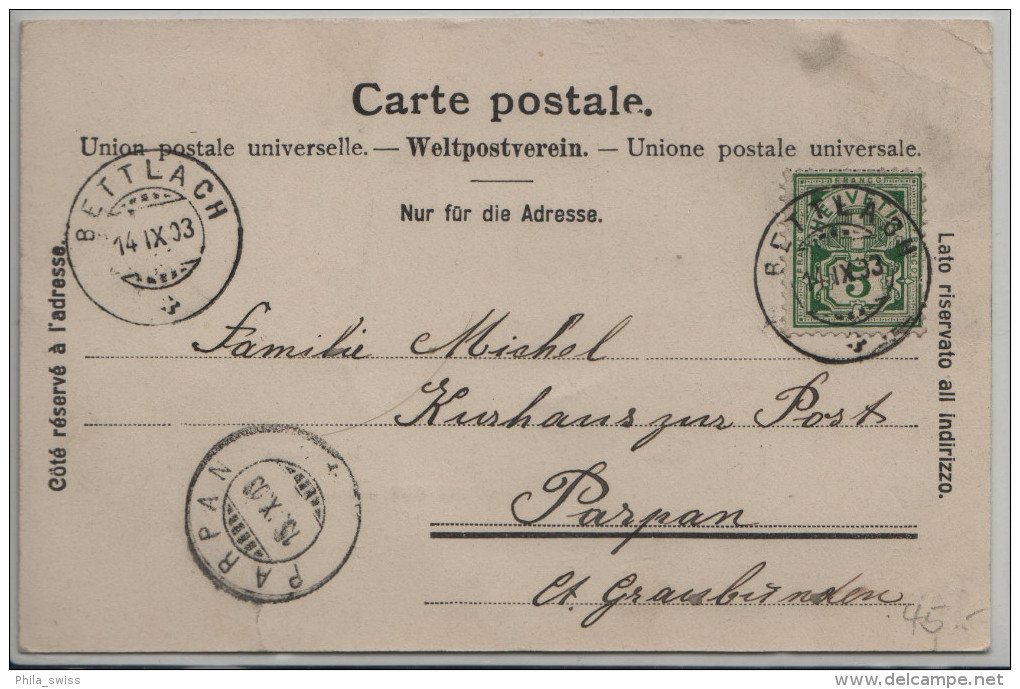 Carte postale.
Union postale universelle. — Weltpostverein. — Unione postale universale.
Nur für die Adresse.
BETTLACH
14 IX 03
FRANCO
HELVETIA
5
BETTLACH
14 IX 03
Côté réservé à l'adresse.
Lato riservato all indirizzo.
Familie Michel
Kurhaus zur Post
Parpan
Ct. Graubünden
PARPAN
15. X 03
45.-
Phila_swiss
delcampe.net